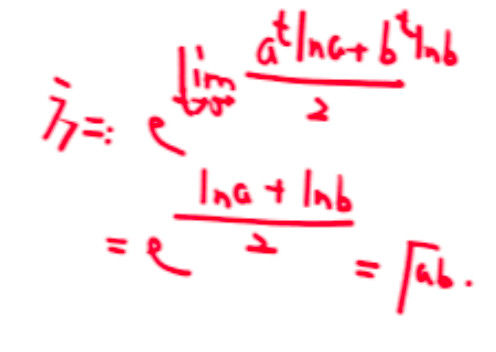 原 = e^{\lim_{t→0^+} \frac{a^t \ln a + b^t \ln b}{2}}
= e^{\frac{\ln a + \ln b}{2}} = \sqrt{ab}.